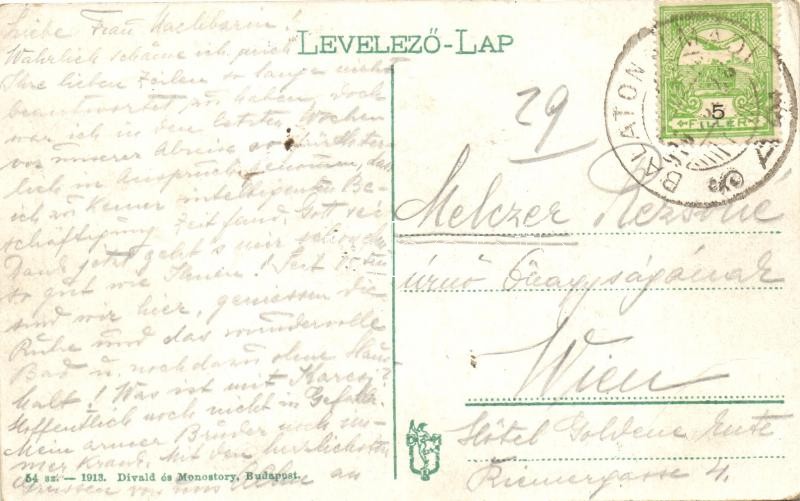 LEVELEZŐ-LAP
Liebe Frau Nachbarin!
Wahrlich schäme ich mich
Ihre lieben Zeilen so lange nicht
beantwortet zu haben, doch
war ich in den letzten Wochen
vor unserer Abreise so fürchter-
lich in Anspruch genommen, dass
ich zu keiner intelligenten Be-
schäftigung Zeit fand. Gott sei
Dank jetzt geht's mir schon
so gut wie Ihnen! Seit 15/VII
sind wir hier, geniessen die
Ruhe und das wundervolle
Bad u. noch dazu ohne Haus-
halt! Was ist mit Karcsi?
Hoffentlich noch nicht in Gefahr.
Mein armer Bruder noch im-
mer krank. Mit den herzlichsten
Grüssen von uns Allen an
54 sz. — 1913. Divald és Monostory, Budapest.
29
Melczer Rezsőné
úrnő Őnagyságának
Wien
Hôtel Goldene Ente
Riemergasse 4.
5
FILLÉR
BALATON